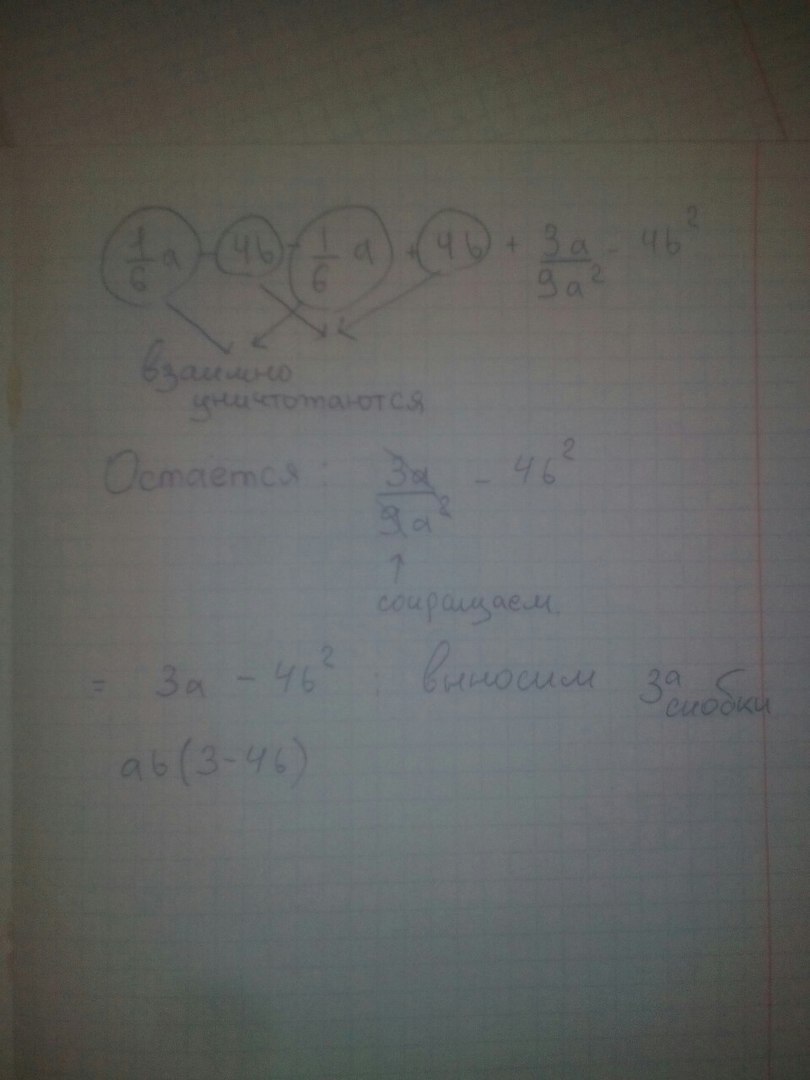 1/6 a - 4b - 1/6 a + 4b + 3a/9a² - 4b²
взаимно
уничтожаются
Остаётся: 3a/9a² - 4b²
↑
сокращаем
= 3a - 4b² : выносим за
скобки
ab(3-4b)